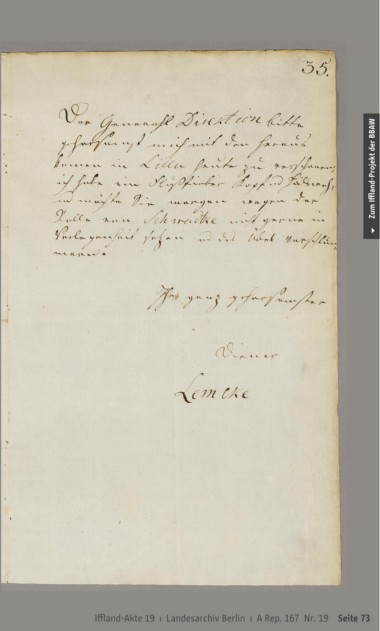 35.
Der Generahl Direktion bitte
gehorsamst mich mit den heraus
komen in Lilla heute zu verschonen,
ich habe ein Kopf und
und möchte Sie morgen wegen der
Rolle von nicht gerne in
Verlegenheit setzen u das Übel verschlim
mern.
Ihr ganz gehorsamster
Diener
Lemcke
Zum Iffland-Projekt der BBAW
Iffland-Akte 19 | Landesarchiv Berlin | A Rep. 167 Nr. 19 Seite 73